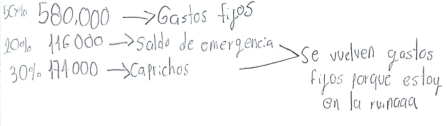 50% 580,000 → Gastos fijos
20% 116000 → Saldo de emergencia
30% 174000 → Caprichos
Se vuelven gastos
fijos porque estoy
en la ruinaaa